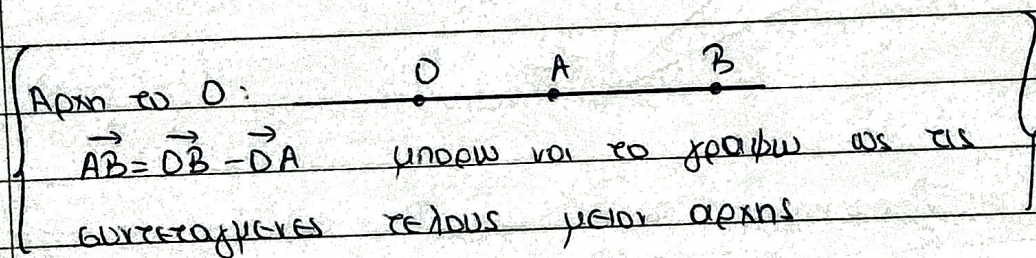 O A B
Αρχη το O:
AB⃗ = OB⃗ - OA⃗ μπορω να το γραψω ως τις
συντεταγμενες τελους μειον αρχης